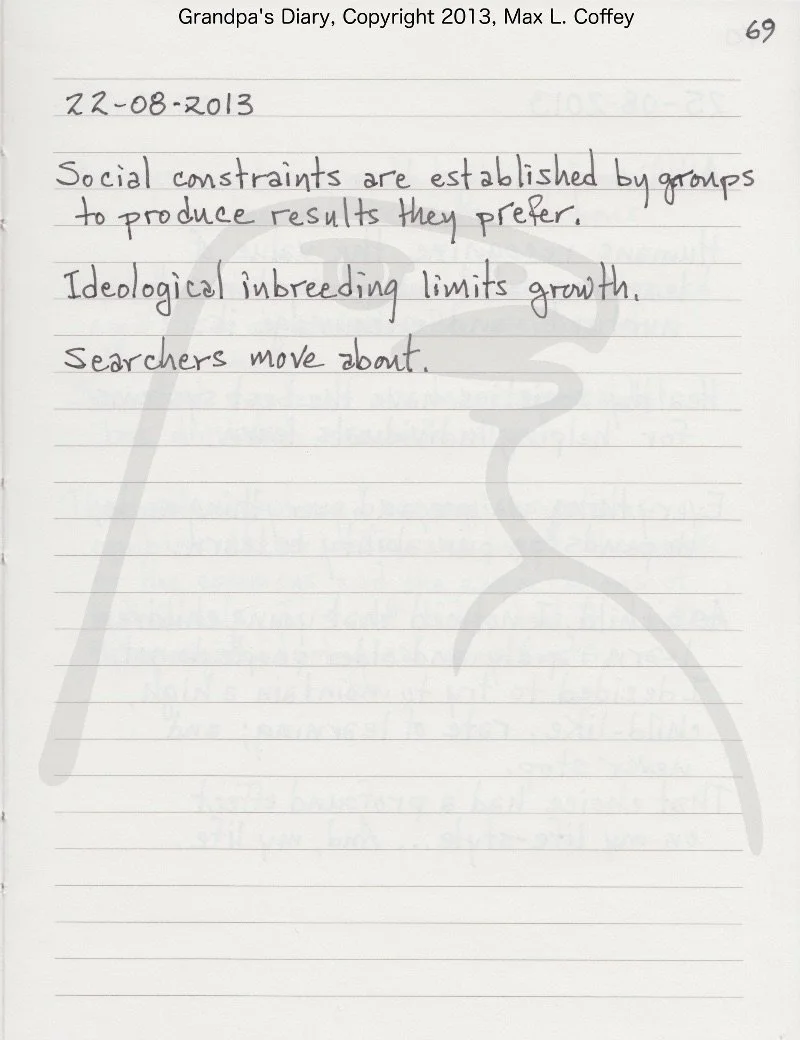 Grandpa's Diary, Copyright 2013, Max L. Coffey
69
22-08-2013
Social constraints are established by groups
to produce results they prefer.
Ideological inbreeding limits growth.
Searchers move about.